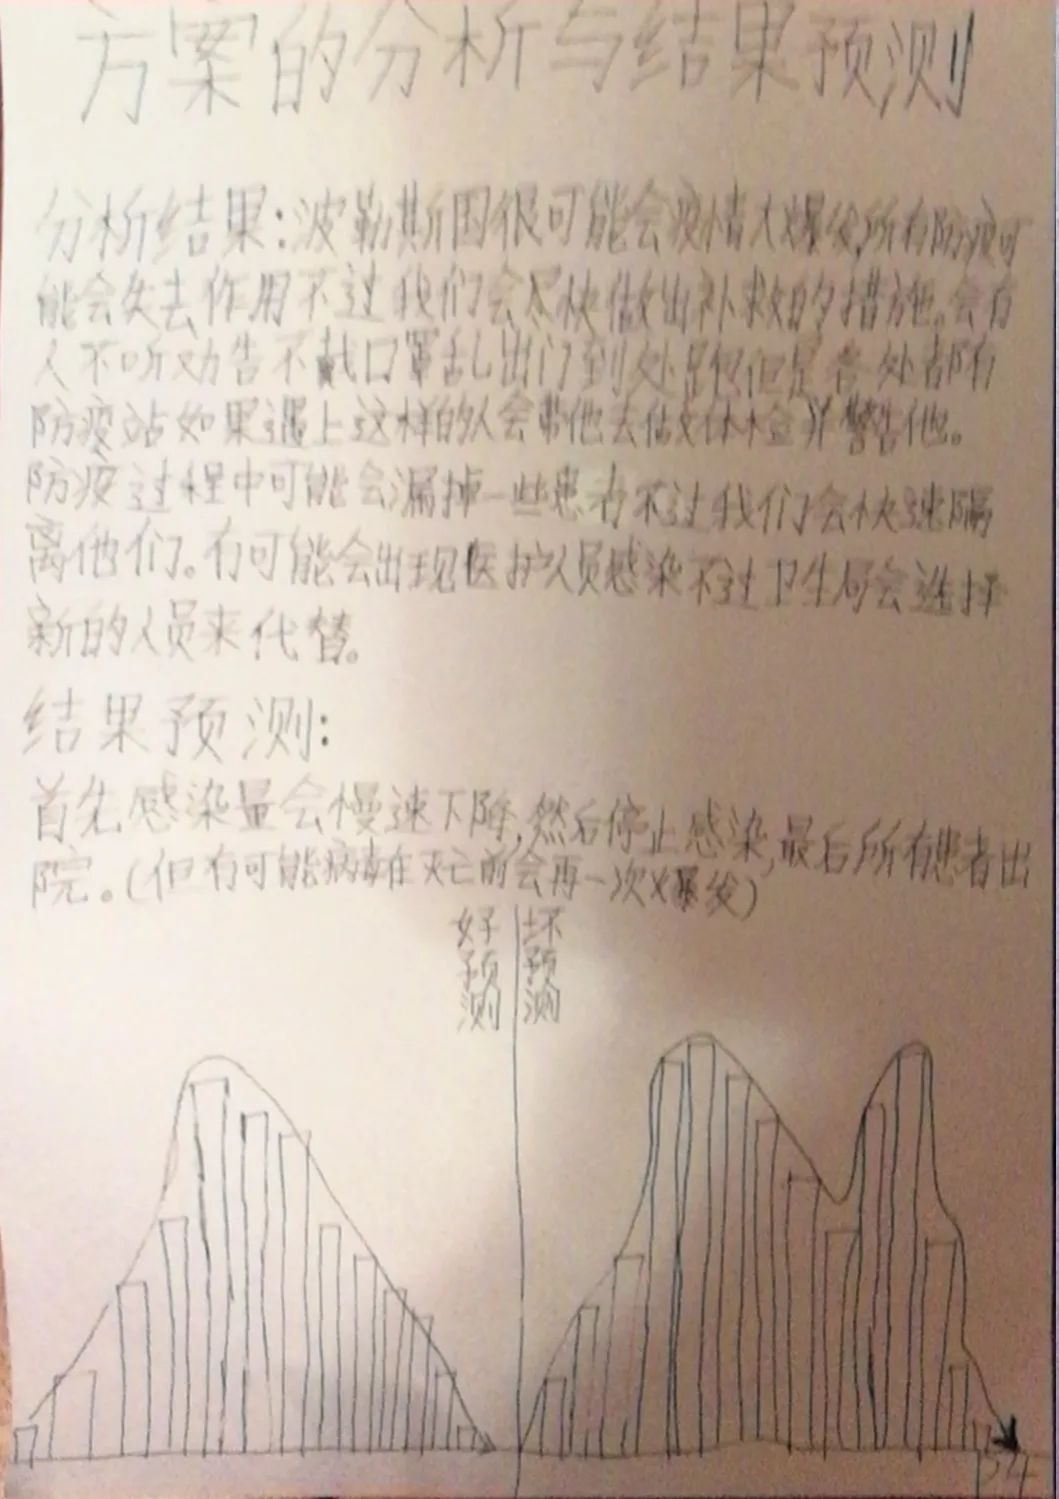 方案的分析与结果预测
分析结果:波勒斯国很可能会疫情大爆发,所有防疫可
能会失去作用不过我们会尽快做出补救的措施。会有
人不听劝告不戴口罩乱出门到处跑但是各处都有
防疫站如果遇上这样的人会带他去做体检并警告他。
防疫过程中可能会漏掉一些患者不过我们会快速隔
离他们。有可能会出现医护人员感染不过卫生局会选择
新的人员来代替。
结果预测:
首先感染量会慢速下降,然后停止感染,最后所有患者出
院。(但有可能病毒在灭亡前会再一次爆发)
好预测
坏预测
P4